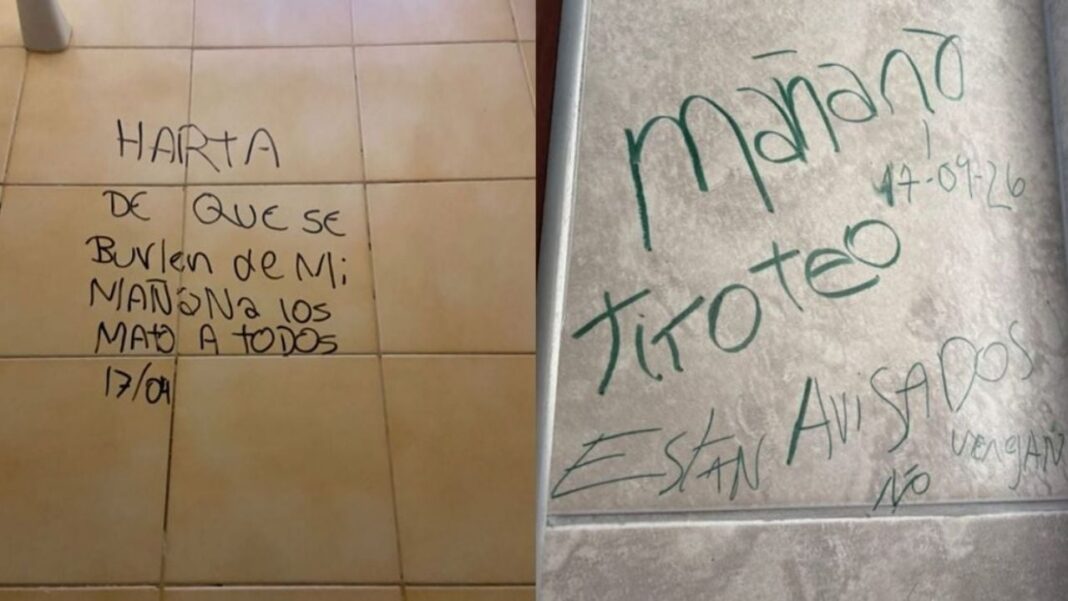 HARTA
DE QUE SE
BURLEN de Mi
MAÑANA los
MATO A TODOS
17/04
Mañana
17-04-26
tiroteo
ESTAN AVISADOS
NO VENGAN